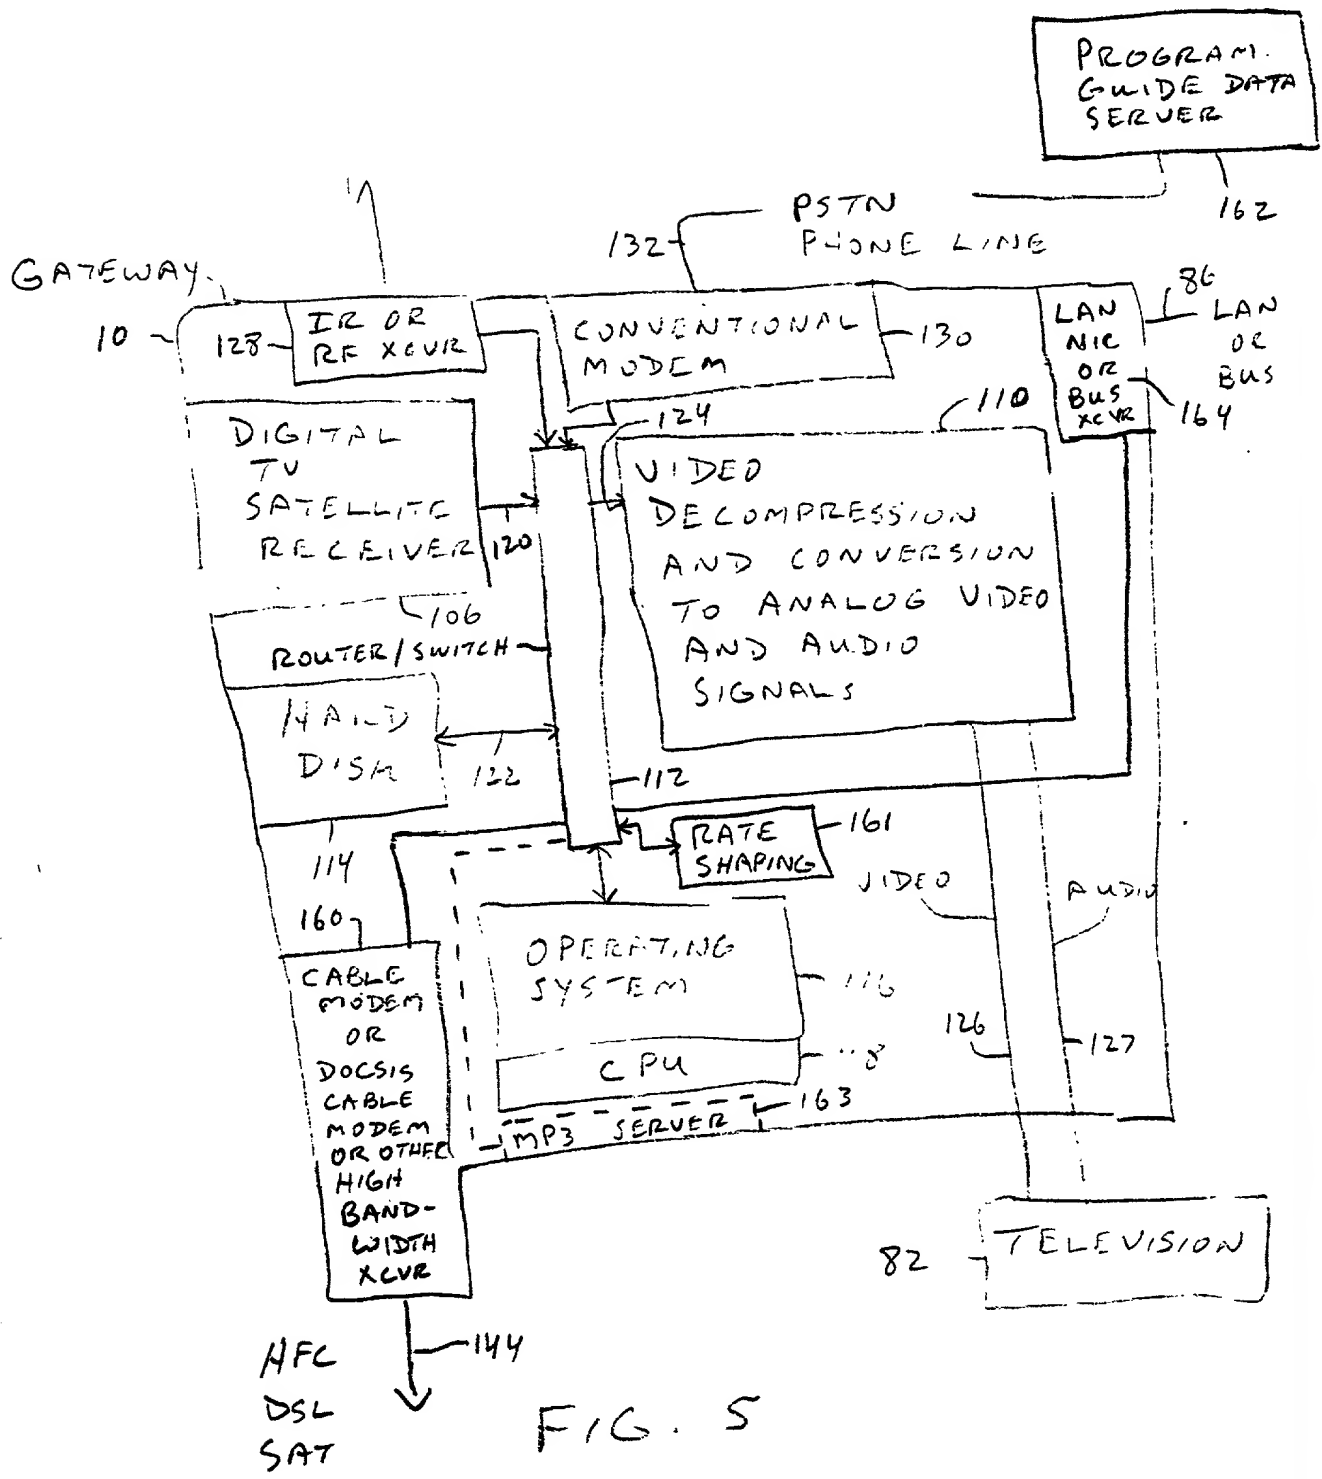 PROGRAM.
GUIDE DATA
SERVER
162
PSTN
PHONE LINE
132
GATEWAY
10
128
IR OR
RF XCVR
CONVENTIONAL
MODEM
130
LAN
NIC
OR
BUS
XCVR
86
LAN
OR
BUS
164
124
110
DIGITAL
TV
SATELLITE
RECEIVER
120
106
VIDEO
DECOMPRESSION
AND CONVERSION
TO ANALOG VIDEO
AND AUDIO
SIGNALS
ROUTER/SWITCH
HARD
DISK
122
112
114
RATE
SHAPING
161
VIDEO
AUDIO
160
CABLE
MODEM
OR
DOCSIS
CABLE
MODEM
OR OTHER
HIGH
BAND-
WIDTH
XCVR
OPERATING
SYSTEM
116
CPU
MP3 SERVER
163
126
127
82
TELEVISION
144
HFC
DSL
SAT
FIG. 5